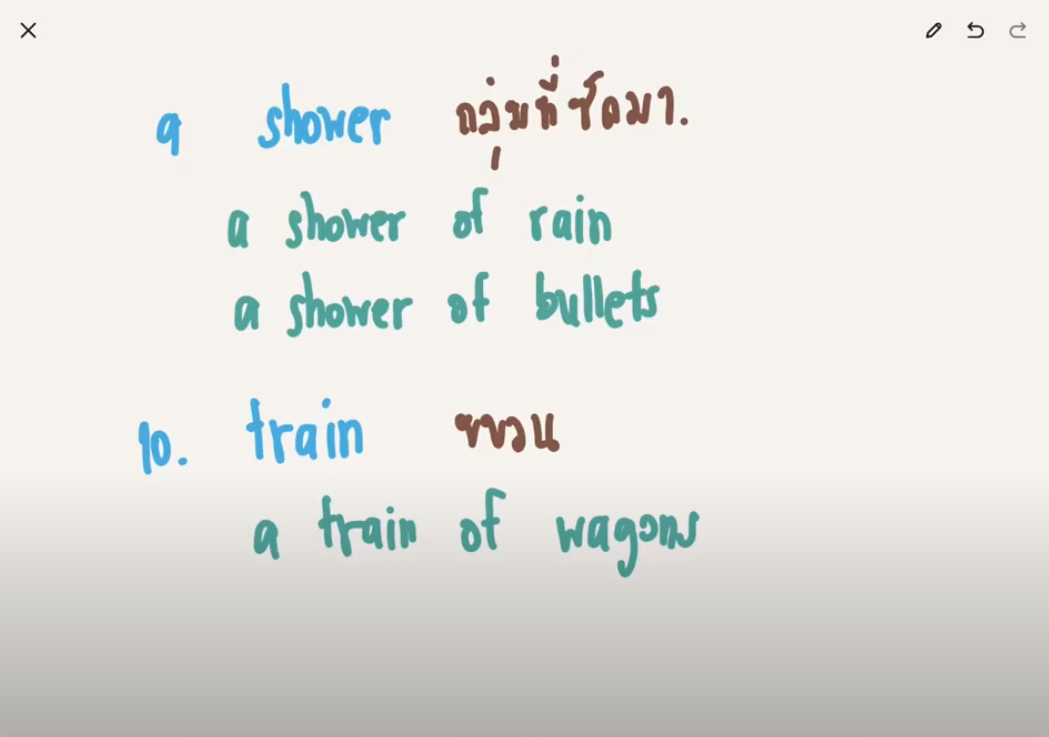 9 shower กลุ่มที่ซัดมา.
a shower of rain
a shower of bullets
10. train ขบวน
a train of wagons